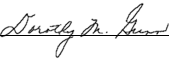 Dorothy M. Gunn